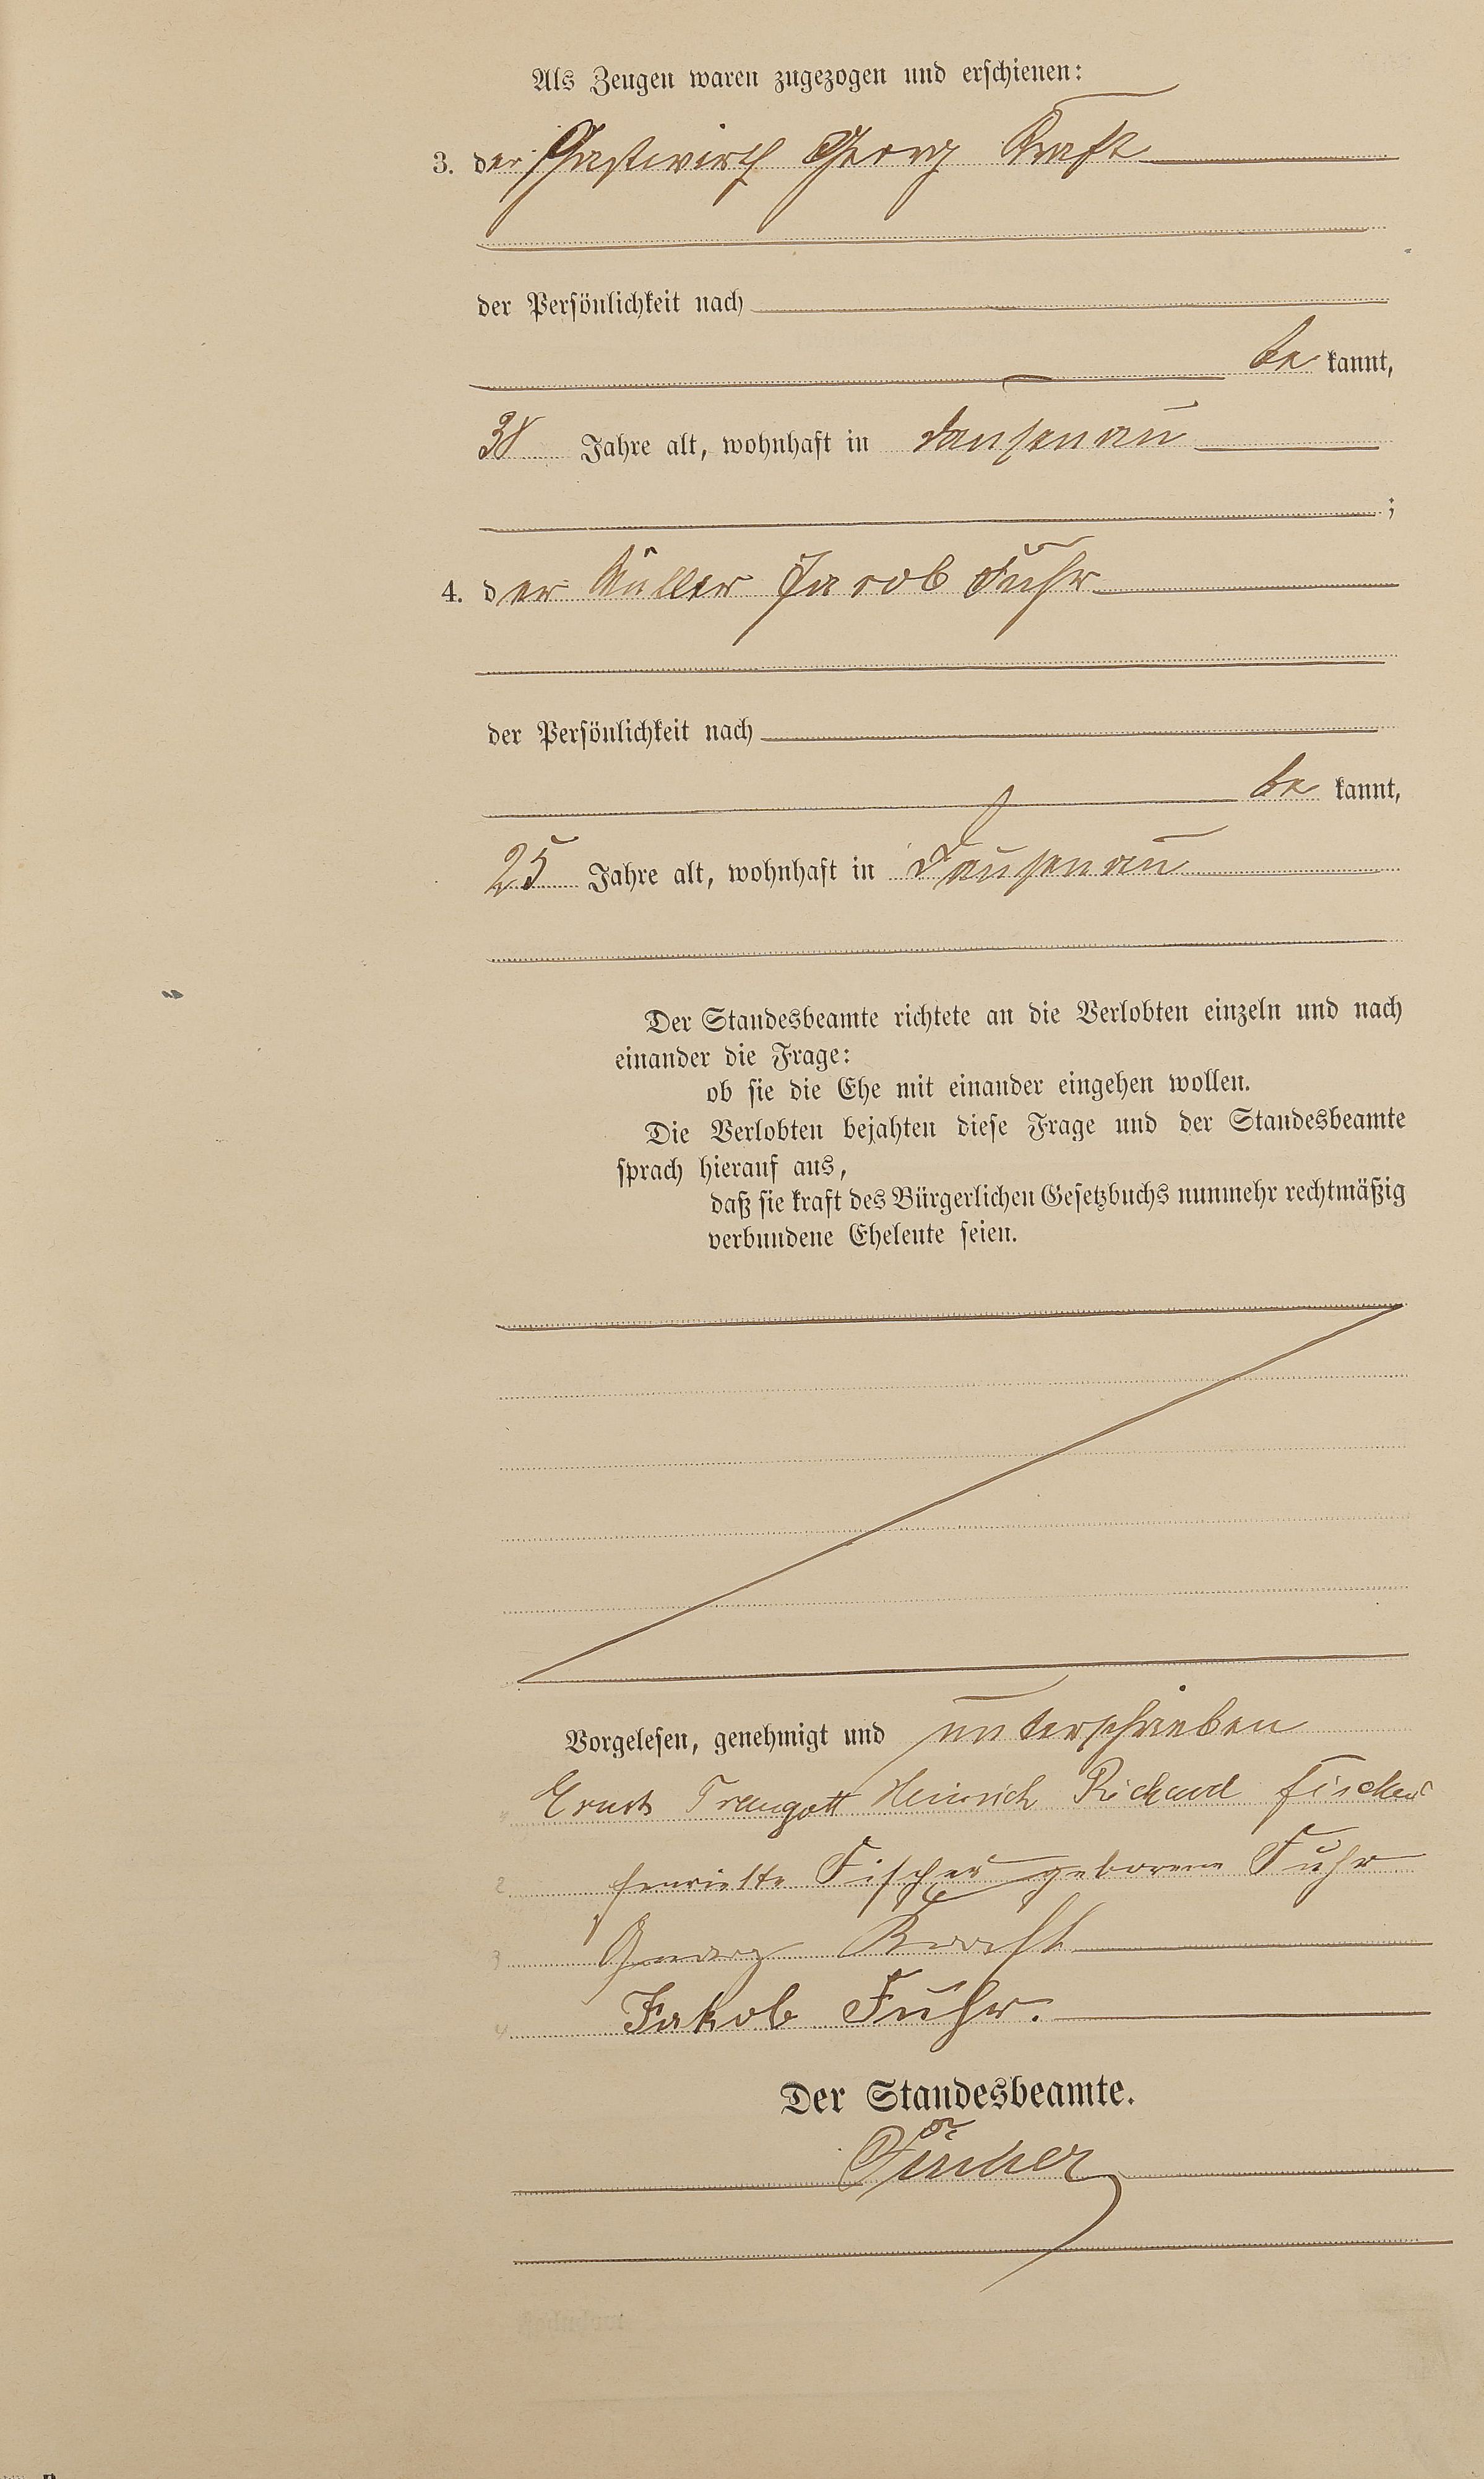 Als Zeugen waren zugezogen und erschienen:
3. der Gastwirth Georg Kraft
der Persönlichkeit nach
be kannt,
38 Jahre alt, wohnhaft in Dausenau
;
4. der Müller Jacob Fuhr
der Persönlichkeit nach
be kannt,
25 Jahre alt, wohnhaft in Dausenau
Der Standesbeamte richtete an die Verlobten einzeln und nach
einander die Frage:
ob sie die Ehe mit einander eingehen wollen.
Die Verlobten bejahten diese Frage und der Standesbeamte
sprach hierauf aus,
daß sie kraft des Bürgerlichen Gesetzbuchs nunmehr rechtmäßig
verbundene Eheleute seien.
Vorgelesen, genehmigt und unterschrieben
Ernst Traugott Heinrich Richard Fischer
2 Henriette Fischer geborene Fuhr
3 Georg Kraft
4 Jakob Fuhr.
Der Standesbeamte.